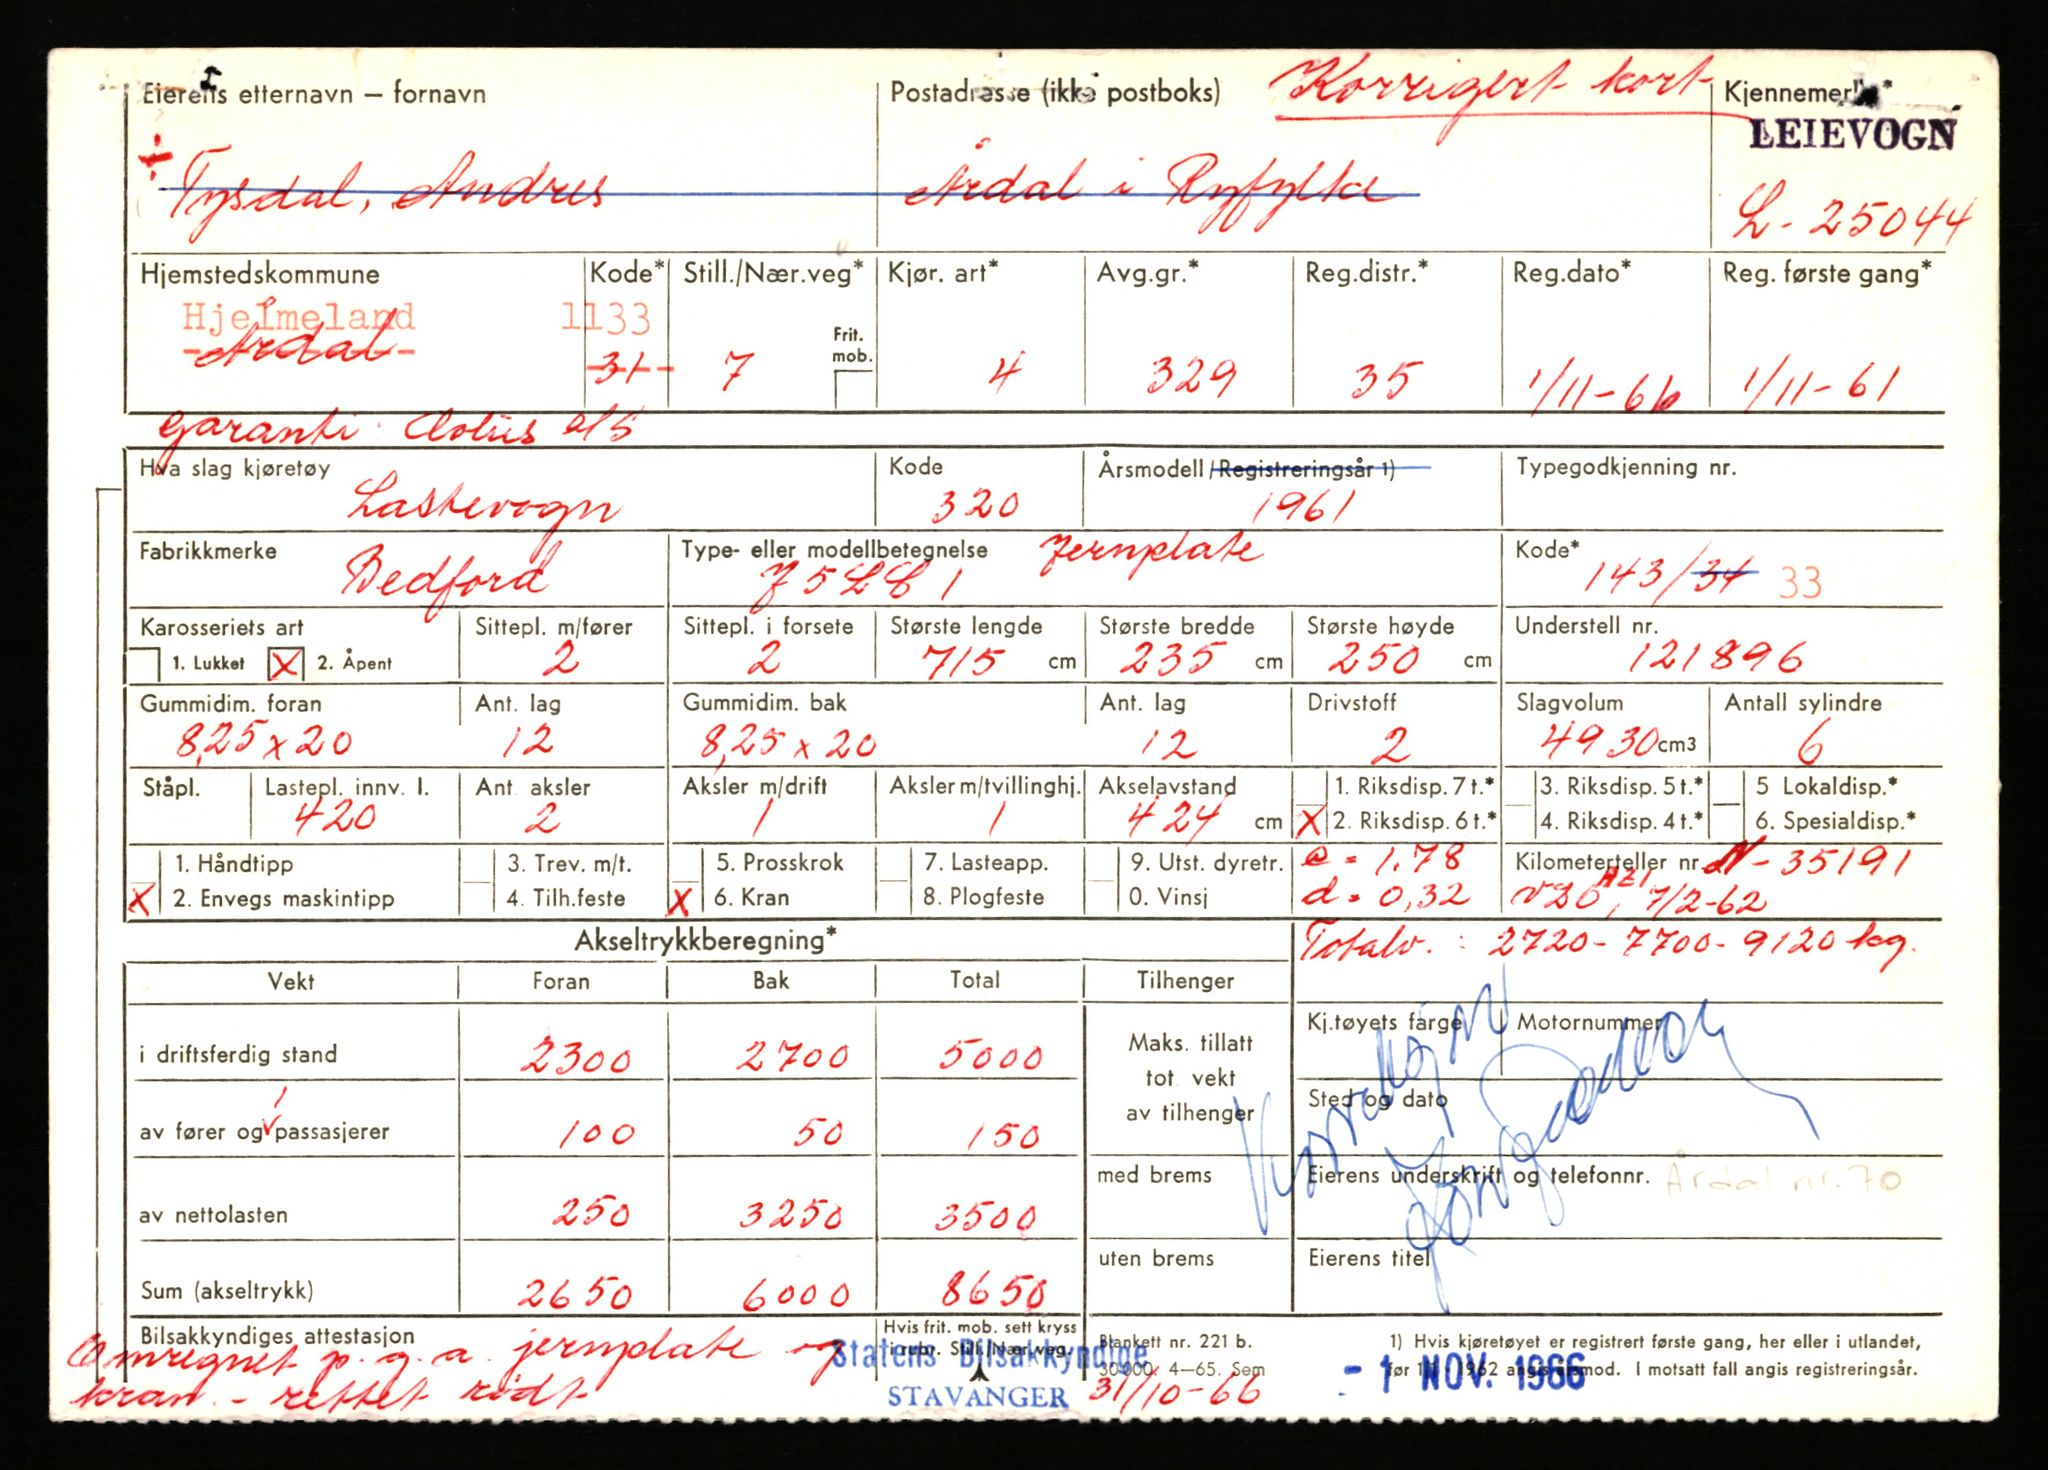 Eierens etternavn – fornavn
Postadresse (ikke postboks)
Korrigert kort
Kjennemerke*
LEIEVOGN
÷ Tysdal, Andres
Årdal i Ryfylke
L-25044
Hjemstedskommune
Kode*
Still./Nær.veg*
Kjør. art*
Avg.gr.*
Reg.distr.*
Reg.dato*
Reg. første gang*
Hjelmeland 1133
Årdal 31
7
Frit. mob.
4
329
35
1/11-66
1/11-61
Garanti a/s
Hva slag kjøretøy
Kode
Årsmodell/Registreringsår 1)
Typegodkjenning nr.
Lastevogn
320
1961
Fabrikkmerke
Type- eller modellbetegnelse
Jernplate
Kode*
Bedford
143/34 33
Karosseriets art
Sittepl. m/fører
Sittepl. i forsete
Største lengde
Største bredde
Største høyde
Understell nr.
1. Lukket
X 2. Åpent
2
2
715 cm
235 cm
250 cm
121896
Gummidim. foran
Ant. lag
Gummidim. bak
Ant. lag
Drivstoff
Slagvolum
Antall sylindre
8,25 x 20
12
8,25 x 20
12
2
4930 cm3
6
Ståpl.
Lastepl. innv. l.
Ant. aksler
Aksler m/drift
Aksler m/tvillinghj.
Akselavstand
1. Riksdisp. 7 t.*
3. Riksdisp. 5 t.*
5 Lokaldisp.*
420
2
1
1
424 cm
X 2. Riksdisp. 6 t.*
4. Riksdisp. 4 t.*
6. Spesialdisp.*
1. Håndtipp
3. Trev. m/t.
5. Prosskrok
7. Lasteapp.
9. Utst. dyretr.
e = 1,78
Kilometerteller nr. N-35191
X 2. Envegs maskintipp
4. Tilh.feste
X 6. Kran
8. Plogfeste
0. Vinsj
d = 0,32
7/2-62
Akseltrykkberegning*
Totalv. : 2720-7700-9120 kg.
Vekt
Foran
Bak
Total
Tilhenger
Kj.tøyets farge
Motornummer
i driftsferdig stand
2300
2700
5000
Maks. tillatt
tot vekt
av tilhenger
Sted og dato
av fører og 1 passasjerer
100
50
150
med brems
Eierens underskrift og telefonnr. Årdal nr. 70
av nettolasten
250
3250
3500
uten brems
Eierens titel
Sum (akseltrykk)
2650
6000
8650
Bilsakkyndiges attestasjon
Hvis frit. mob. sett kryss
i rubr. Still./Nær.veg.
Blankett nr. 221 b.
30000. 4–65. Sem
1) Hvis kjøretøyet er registrert første gang, her eller i utlandet,
før 1/1 1962 angis årsmod. I motsatt fall angis registreringsår.
Omregnet p.g.a. jernplate og
kran - rettet rødt
Statens Bilsakkyndige
STAVANGER
31/10-66
- 1 NOV. 1966